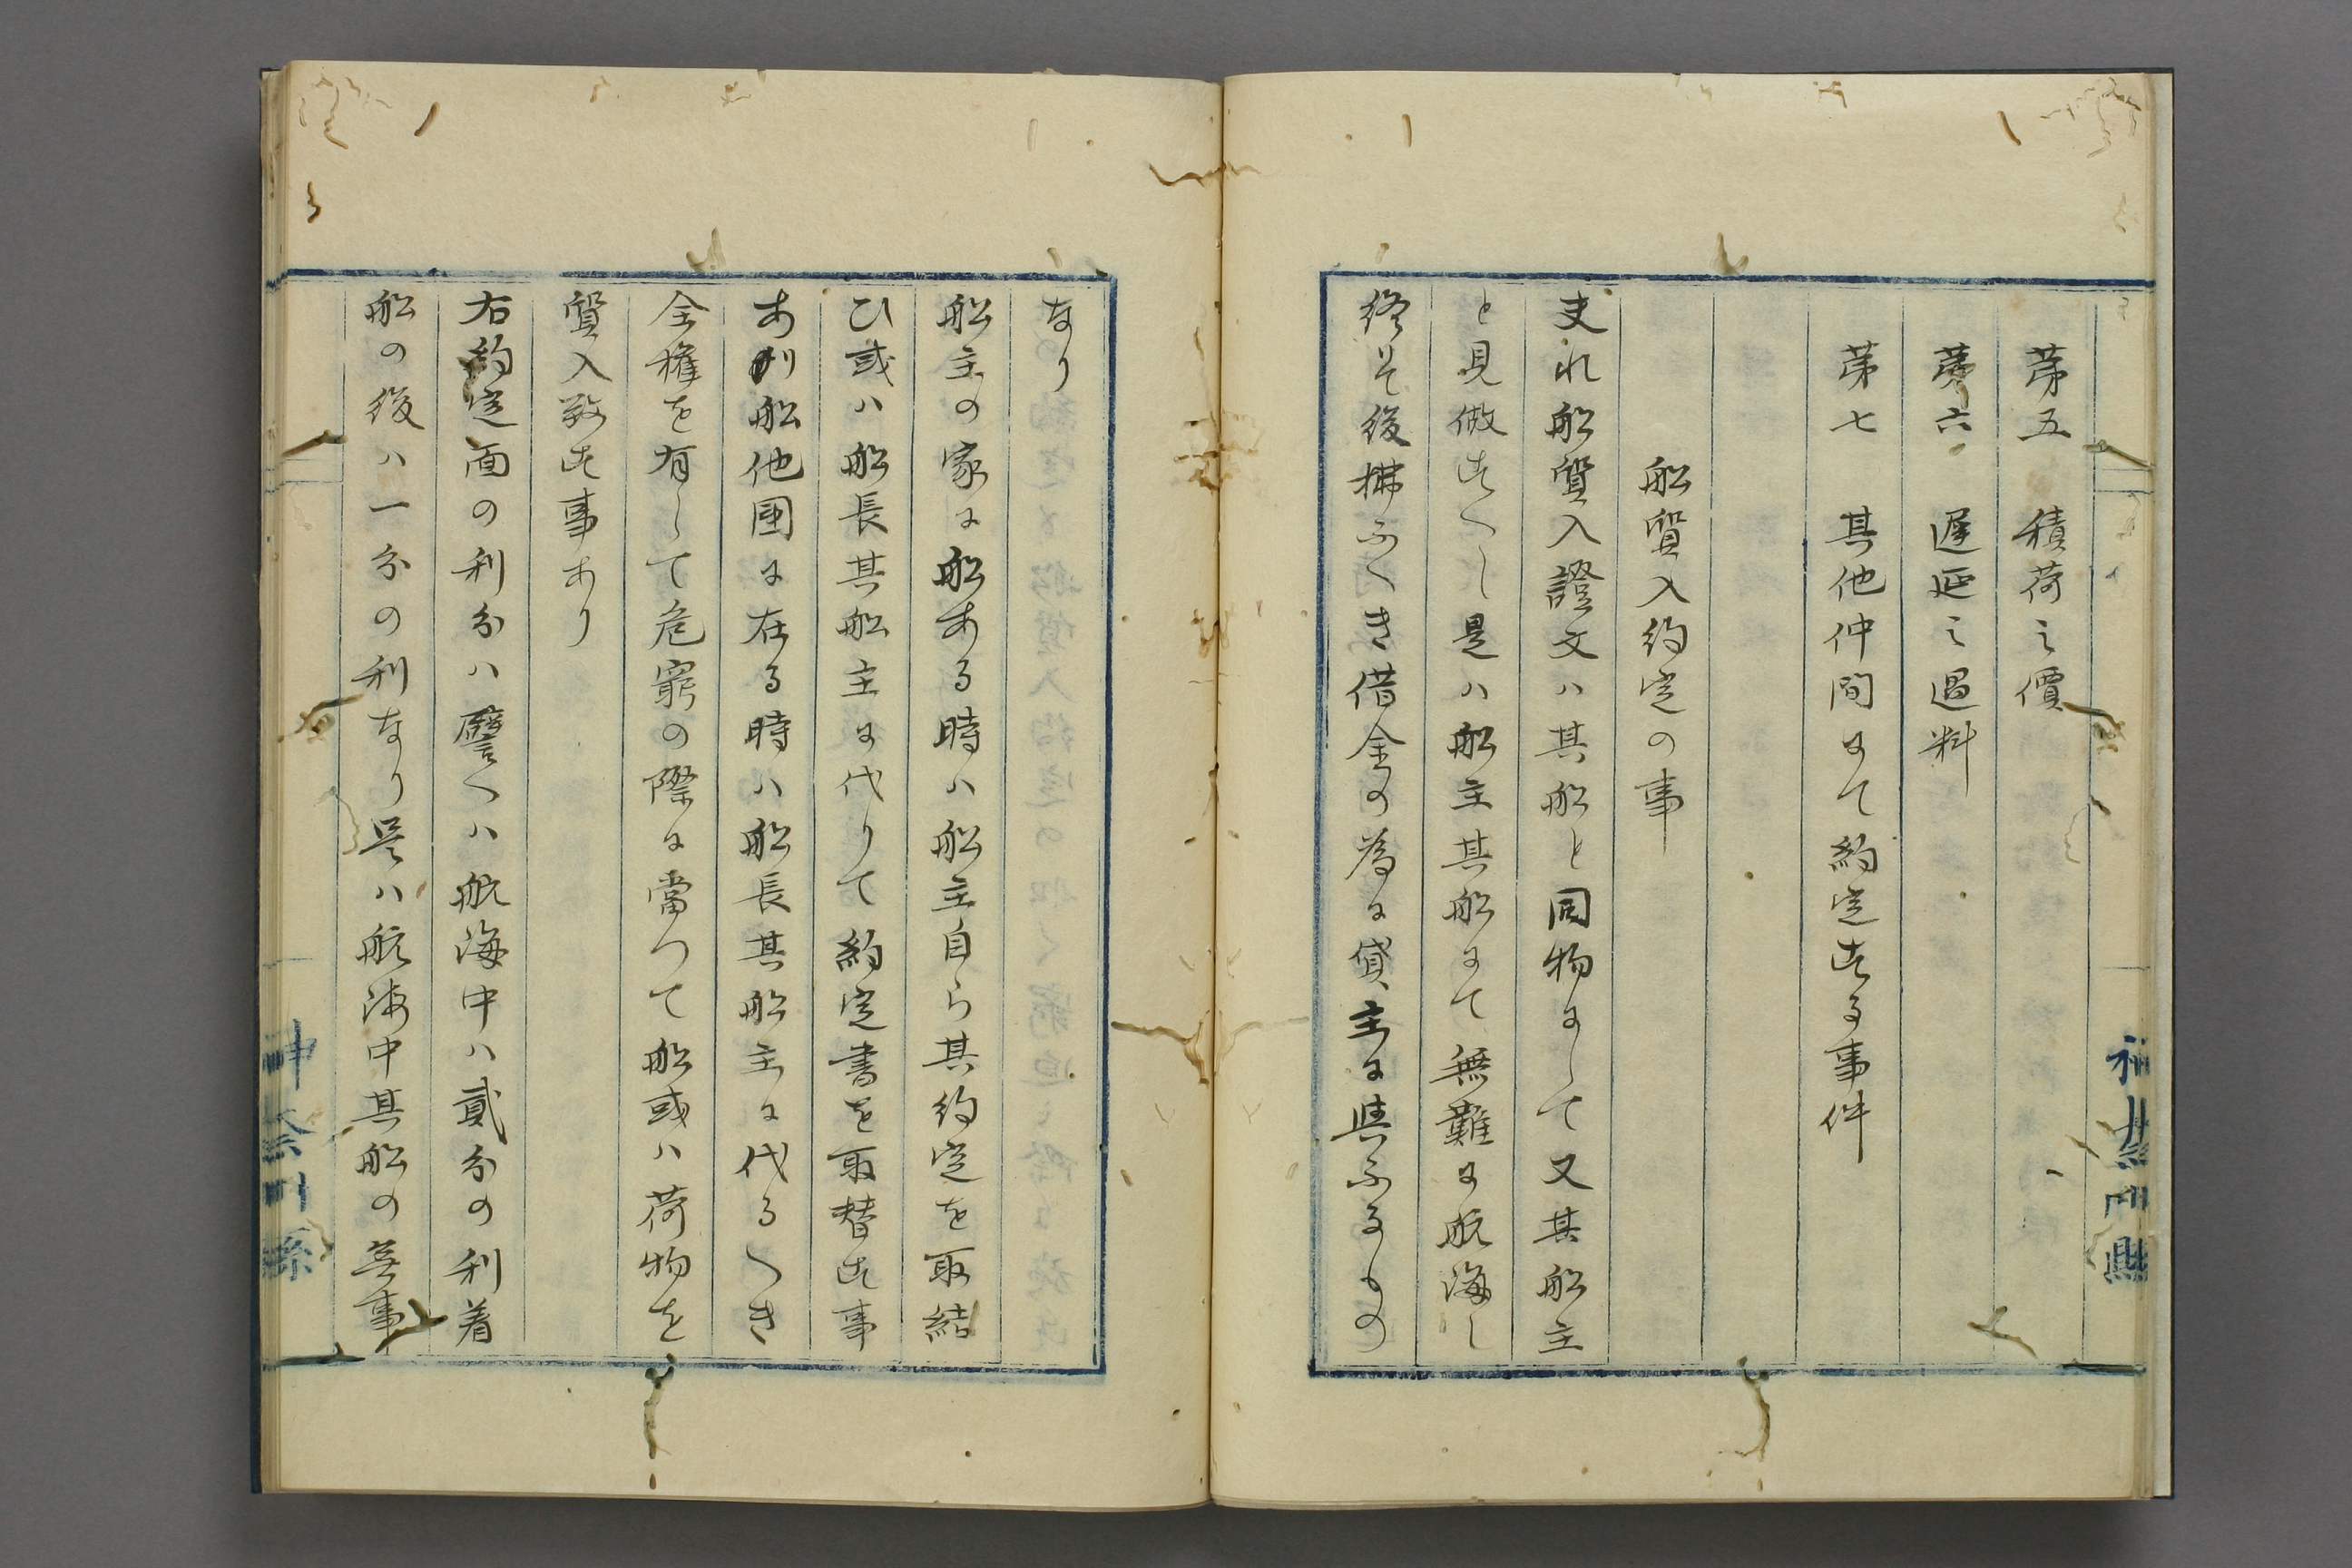 第五　積荷之價
第六　遅延之過料
第七　其他仲間にて約定する事件
船質入約定の事
夫れ船質入證文ハ其船と同物にして又其船主
と見做すへし是ハ船主其船にて無難に航海し
終そ後拂ふへき借金の為に貸主に與ふるもの
なり
船主の家に船ある時ハ船主自ら其約定を取結
ひ或ハ船長其船主に代りて約定書を取替す事
あり船他国に在る時ハ船長其船主に代るへき
全権を有して危窮の際に當つて船或ハ荷物を
質入致す事あり
右約定面の利分ハ譬へハ航海中ハ貳分の利着
船の後ハ一分の利なり是ハ航海中其船の無事
神奈川縣